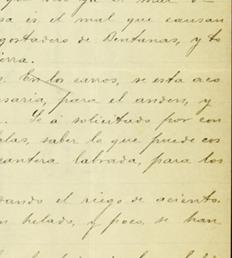 sa es el mal que causan
gostadero de Bentanas, y to
erra.
. En los carros, se esta aca
saria, para el anden, y
. Se á solicitado por con
las, saber lo que puede cos
cantera labrada, para los
ando el riego de aciento.
n helado, y poco, se han